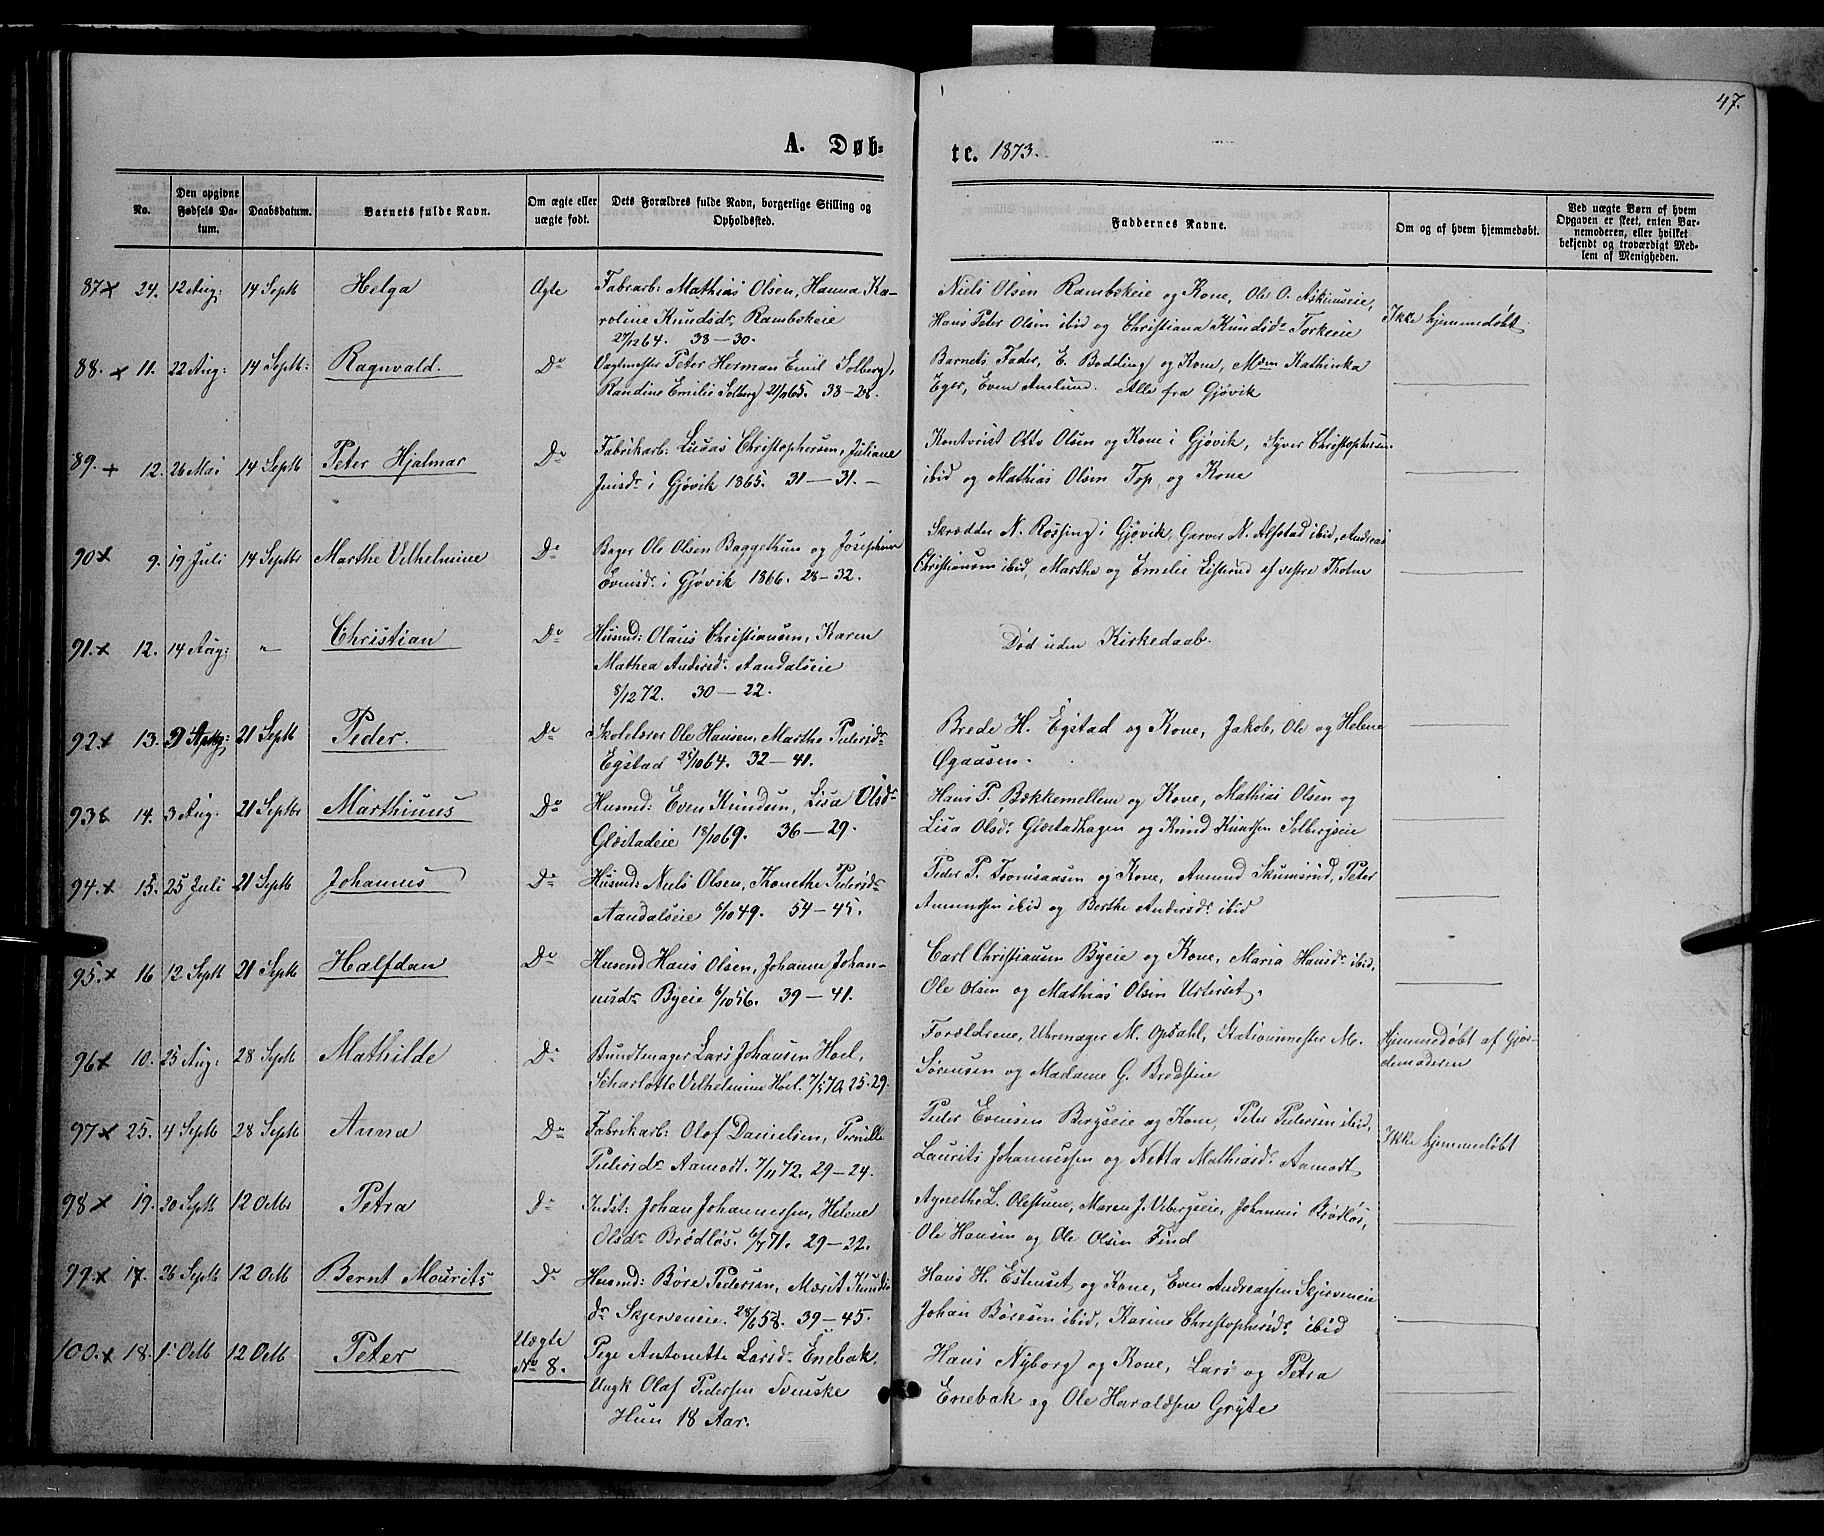 47.
A. Døb-
te. 1873.
No.
Den opgivne Fødsels Da-tum.
Daabsdatum.
Barnets fulde Navn.
Om ægte eller uægte født.
Dets Forældres fulde Navn, borgerlige Stilling og Opholdssted.
Faddernes Navne.
Om og af hvem hjemmedøbt.
Ved uægte Børn af hvem Opgaven er skeet, enten Bar-nemoderen, eller hvilket bekjendt og troværdigt Med-lem af Menigheden.
87 x 24. 12 Aug: 14 Septb Helga Ægte Fabrarb: Mathias Olsen, Hanna Ka-
roline Knudsdr, Rambskeie
27/12 64. 33–30.
Niels Olsen Rambskeie og Kone, Ole O. Askimseie,
Hans Peter Olsen ibid og Christiana Knudsdr Torkeie
Ikke hjemmedøbt
88. x 11. 22 Aug: 14 Septb: Ragnvald. Do Vagtmester Peter Herman Emil Solberg,
Randine Emilie Solberg 65. 33–28.
Barnets Fader, E. Bodding og Kone, Mdm Kathinka
Eger, Even Amlund. Alle fra Gjøvik
89. + 12. 26 Mai 14 Septb Peter Hjalmar Do Fabrikarb: Lucas Christophersen, Juliane
Jensdr i Gjøvik 1865. 31–31.–
Kontorist Otto Olsen og Kone i Gjøvik, Syver Christophersen
ibid og Mathias Olsen Top og Kone
90 x 9. 19 Juli 14 Septbr Marthe Vilhelmine Do Bager Ole Olsen Baggethun og Josephine
Evensdr i Gjøvik 1866. 28–32.
Skrædder N. Røssing i Gjøvik, Garver N. Alfstad ibid, Andreas
Christiansen ibid, Marthe og Emilie Listerud af vestre Thoten
91. x 12. 14 Aug: " Christian Do Husmd: Olaus Christiansen, Karen
Mathea Andersdr Aandalseie
8/12 72. 30–22.
Død uden Kirkedaab.
92 x 13. 21 Septb Peder. Do Skolelærer Ole Hansen, Marthe Pedersdr
Egstad 25/10 64. 32–41.
Brede H. Egstad og Kone, Jakob, Ole og Helene
Øgaasen.
93 x 14. 3 Aug. 21 Septbr Marthinus Do Husmd: Even Knudsen, Lisa Olsdr
Glæstadeie 18/10 69. 36–29.
Hans P. Bækkemellem og Kone, Mathias Olsen og
Lisa Olsdr Glæstadhagen og Knud Knudsen Solbergseie
94. x 15. 25 Juli 21 Septb Johannes Do Husmd: Niels Olsen, Thonethe Pedersdr
Aandalseie 6/10 49. 54–45.
Peder P. og Kone, Amund Skumsrud, Peter
Amundsen ibid og Berthe Andersdr ibid
95. x 16 12 Septb 21 Septb Halfdan Do Husmd Hans Olsen, Johanne Johan-
nesdr Byeie 6/10 56. 39–41.
Carl Christiansen Byeie og Kone, Maria Hansdr ibid,
Ole Olsen og Mathias Olsen Urterset.
96 x 10. 25 Aug: 28 Septb Mathilde Do Bundtmager Lars Johansen Hoel,
Scharlotte Vilhelmine Hoel. 7/5 70. 25–29.
Forældrene, Uhrmager M. Opsahl, Stationsmester M.
Sørensen og Madame G. Brodstue
Hjemmedøbt af Gjor-
demoderen
97 x 25. 4 Septb 28 Septb Anna Do Fabrikarb: Olof Danielsen, Pernille
Pedersdr Aamodt. 7/11 72. 29–24.
Peder Evensen Bergseie og Kone, Peter Pedersen ibid,
Laurits Johannessen og Netta Mathiasdr Aamodt
Ikke hjemmedøbt
98 x 19. 20 Septb 12 Octbr Petra Do Indst: Johan Johannessen, Helene
Olsdr Brødløs. 6/7 71. 29–22.
Agnethe L. Olestuen, Maren J. Vebergseie, Johannes Brødløs,
Ole Hansen og Ole Olsen Find
99. x 17. 26 Septb 12 Octb Bernt Mourits Do Husmd: Børe Pedersen, Marit Knuds-
dr Skjerveneie. 28/6 58. 39–45.
Hans H. Esthuset og Kone, Even Andreassen Skjerveneie
Johan Børesen ibid, Karine Christophersdr ibid
100. x 18. 1 Octb 12 Octb Peter Uægte
No 8.
Pige Antonette Larsdr Enebak.
Ungk Olaf Pedersen Svenske
Hun 18 Aar.
Hans Nyborg og Kone, Lars og Petra
Enebak og Ole Haraldsen Gryte